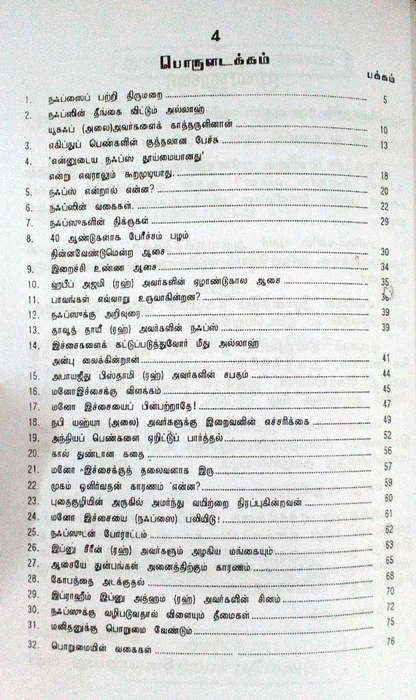 4
பொருளடக்கம்
பக்கம்
1. நஃப்ஸைப் பற்றி திருமறை 5
2. நஃப்ஸின் தீங்கை விட்டும் அல்லாஹ்
யூசுஃப் (அலை)அவர்களைக் காத்தருளினான் 10
3. எகிப்துப் பெண்களின் குத்தலான பேச்சு 13
4. 'என்னுடைய நஃப்ஸ் தூய்மையானது'
என்று எவராலும் கூறமுடியாது. 18
5. நஃப்ஸ் என்றால் என்ன? 20
6. நஃப்ஸின் வகைகள். 22
7. நஃப்ஸுகளின் திக்ருகள் 29
8. 40 ஆண்டுகளாக பேரீச்சம் பழம்
தின்னவேண்டுமென்ற ஆசை 30
9. இறைச்சி உண்ண ஆசை 34
10. ஹபீப் அஜமி (ரஹ்) அவர்களின் ஏழாண்டுகால ஆசை 35
11. பாவங்கள் எவ்வாறு உருவாகின்றன? 36
12. நஃப்ஸுக்கு அறிவுரை. 39
13. தாவூத் தாயீ (ரஹ்) அவர்களின் நஃப்ஸ் 39
14. இச்சைகளைக் கட்டுப்படுத்துவோர் மீது அல்லாஹ்
அன்பு வைக்கின்றான் 41
15. அபாயஜீது பிஸ்தாமி (ரஹ்) அவர்களின் சபதம் 44
16. மனோஇச்சைக்கு விளக்கம் 45
17. மனோ இச்சையைப் பின்பற்றாதே! 47
18. நபி யஹ்யா (அலை) அவர்களுக்கு இறைவனின் எச்சரிக்கை 49
19. அந்நியப் பெண்களை ஏறிட்டுப் பார்த்தல் 52
20. கால் துண்டான கதை 56
21. மனோ இச்சைக்குத் தலைவனாக இரு 57
22. முகம் ஒளிர்வதன் காரணம் என்ன? 59
23. புதைகுழியின் அருகில் அமர்ந்து வயிற்றை நிரப்புகின்றவன் 60
24. மனோ இச்சையை (நஃப்ஸை) பலியிடு! 61
25. நஃப்ஸுடன் போராட்டம் 62
26. இப்னு சீரீன் (ரஹ்) அவர்களும் அழகிய மங்கையும் 63
27. ஆசையே துன்பங்கள் அனைத்திற்கும் காரணம் 65
28. கோபத்தை அடக்குதல் 68
29. இப்ராஹீம் இப்னு அத்ஹம் (ரஹ்) அவர்களின் சினம் 70
30. நஃப்ஸுக்கு வழிபடுவதால் விளையும் தீமைகள் 72
31. மனிதனுக்கு பொறுமை வேண்டும் 75
32. பொறுமையின் வகைகள் 76